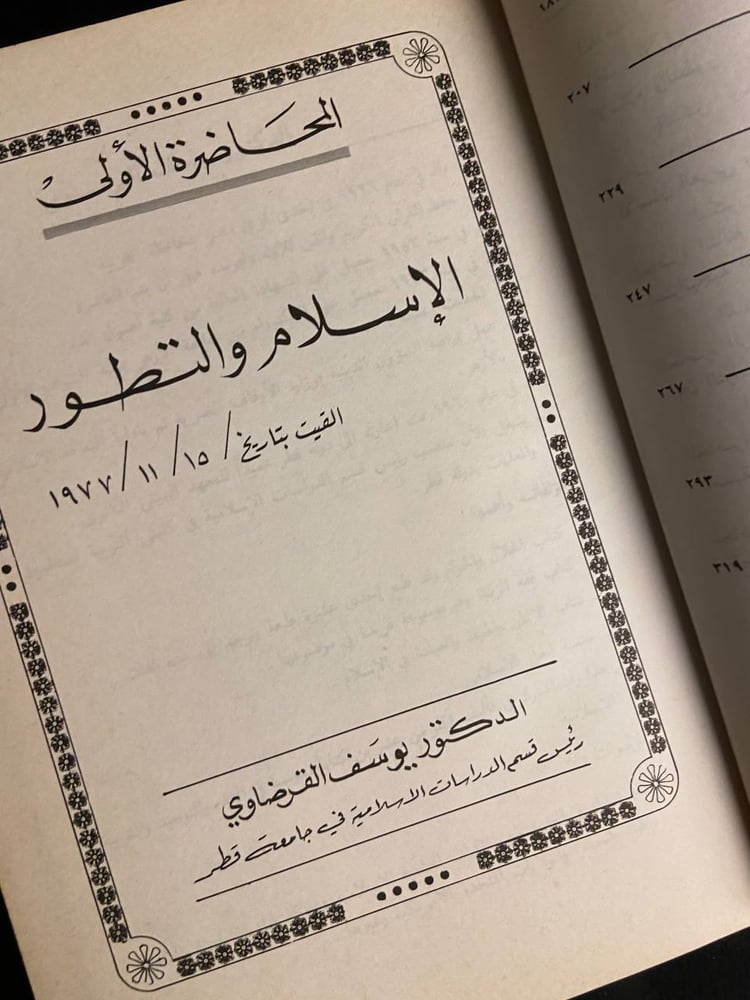 المحاضرة الأولى
الإسلام والتطور
القيت بتاريخ / ١٥ / ١١ / ١٩٧٧
الدكتور يوسف القرضاوي
رئيس قسم الدراسات الاسلامية في جامعة قطر
٢٠٧
٢٢٩
٢٤٧
٢٦٧
٢٩٣
٣١٩